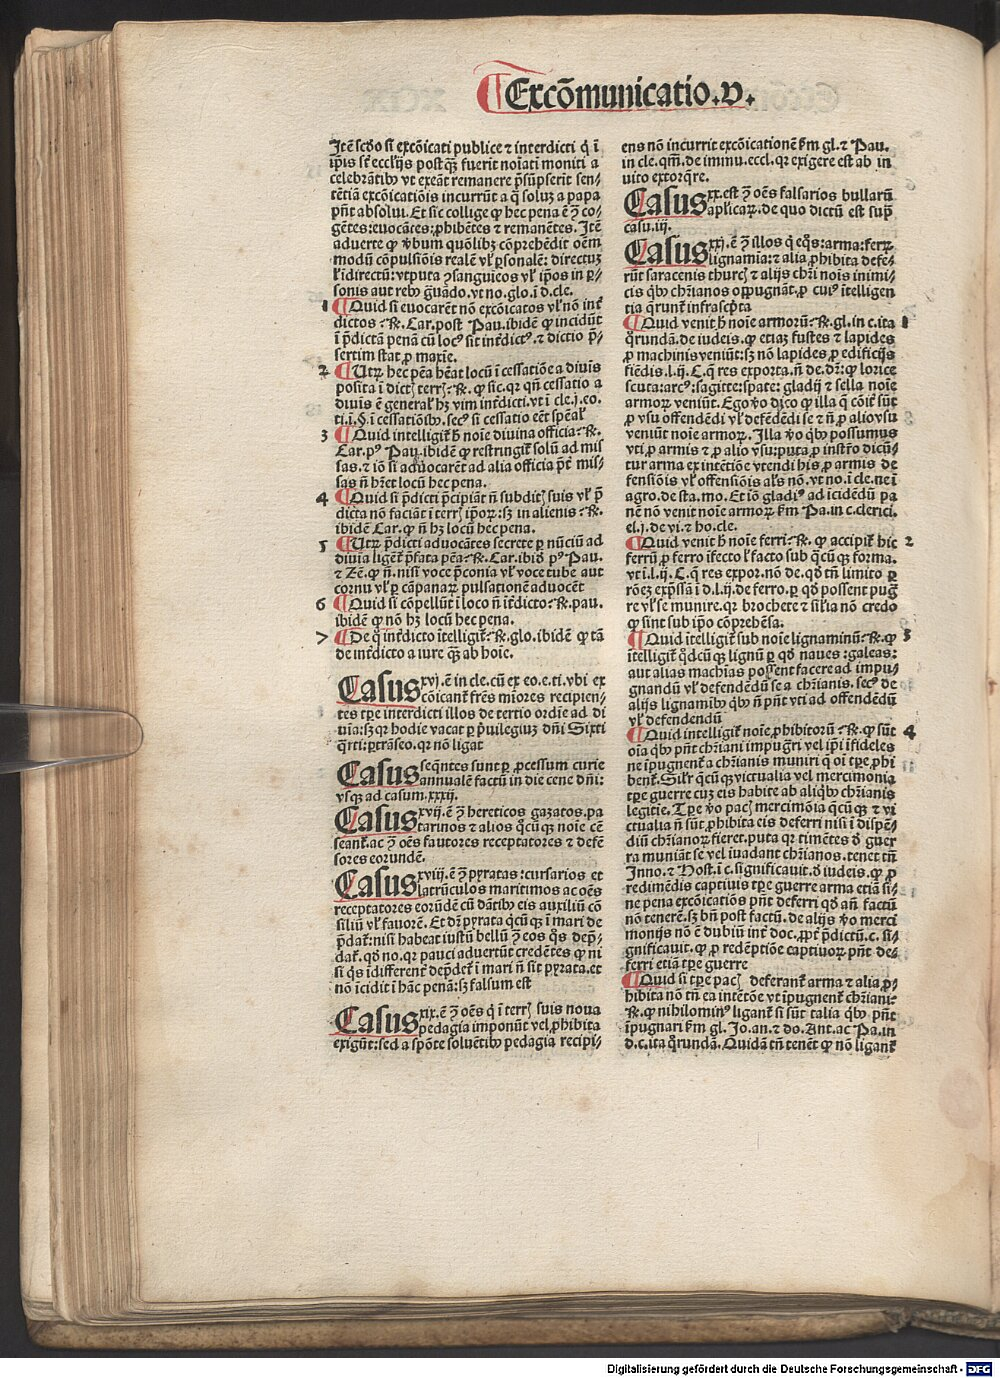 ¶ Excōmunicatio .v.
Itē scḋo si excōicati publice ⁊ interdicti q̇ ī
ip̄is sūt eccl̄ijs postq̄ꝫ fuerīt noīati moniti a
celebrātibꝰ vt exeāt remanere p̄sūpserīt sen⸗
tētia excōicatiōis incurrūt a q̄ soluꝫ a papa
pn̄t absolui. Et sic collige ꝙ hec pena ē ↄ̄ co⸗
gētes: euocātes: ꝓhibētes ⁊ remanētes. Itē
aduerte ꝙ v̇bum quōlibꝫ cōprehēdit oēm
modū cōpulsiōis realē vl̓ ꝑsonalē: directuꝫ
l̓ idirectū: vtputa ↄsanguīeos vl̓ ip̄os in ꝑ⸗
sonis aut rebꝰ gᷓuādo. vt no. glo. ī d. cle.
1 ¶ Quid si euocarēt nō excōicatos vl̓ nō int̓
dictos: ℞. Car. post Pau. ibidē ꝙ incidūt
ī p̄dictā penā cū locꝰ sit int̓dictꝰ. ⁊ dictio p̄⸗
sertim stat ꝓ maxīe.
2 ¶ Utrū hec pēa hēat locū ī cessatiōe a diuīs
posita ī dictꝭ terrꝭ: ℞. ꝙ sic. qꝛ qn̄ cessatio a
diuīs ē general̓ hꝫ vim int̓dicti. vt ī cle. j. eo.
ti. i. §. ī cessatiōibꝰ. secꝰ si cessatio eēt sp̄eal̓
3 ¶ Quid intelligit̄ h̓ noīe diuina officia: ℞.
Car. pꝰ Pau. ibidē ꝙ restringit̄ solū ad mis
sas. ⁊ iō si aduocarēt ad alia officia p̄t̓ mis⸗
sas n̄ hēt locū hec pena.
4 ¶ Quid si p̄dicti p̄cipiāt n̄ subditꝭ suis vl̓ p̄
dicta nō faciāt ī terrꝭ ip̄oꝝ: sꝫ in alienis: ℞.
ibidē Car. ꝙ n̄ hꝫ locū hec pena.
5 ¶ Utrū p̄dicti aduocātes secrete ꝑ nūciū ad
diuīa ligēt̄ p̄fata pēa: ℞. Car. ibiḋ pꝰ Pau.
⁊ Zē. ꝙ n̄. nisi voce p̄conia vl̓ voce tube aut
cornu vl̓ ꝑ cāpanaꝝ pulsationē aduocēt
6 ¶ Quid si cōpellūt ī loco n̄ īt̓dicto: ℞. pau.
ibidē ꝙ nō hꝫ locū hec pena.
7 ¶ De q̊ int̓dicto ītelligit̄: ℞. glo. ibidē ꝙ tā
de int̓dicto a iure q̄ꝫ ab hoīe.
Casus xvj. ē in cle. cū ex eo. e. ti. vbi ex
cōicant̄ fr̄es mīores recipien⸗
tes tp̄e interdicti illos de tertio ordīe ad di
uīa: sꝫ qꝛ hodie vacat ꝑ p̄uilegiuꝫ dn̄i Sixti
q̄rti: ꝑtrāseo. qꝛ nō ligat
Casus seq̄ntes sunt ꝑ ꝓcessum curie
annualē factū in die cene dn̄i:
vsqꝫ ad casum. xxxij.
Casus xvij. ē ↄ̄ hereticos gazatos. pa
tarinos ⁊ alios q̊cūqꝫ noīe cē
seant̄. ac ↄ̄ oēs fautores receptatores ⁊ defē
sores eorundē.
Casus xviij. ē ↄ̄ pyratas: cursarios et
latrūculos maritimos ac oēs
receptatores eorūdē cū dātibꝰ eis auxiliū cō
siliū vl̓ fauorē. Et dr̄ pyrata q̊cūqꝫ ī mari de
p̄dat̄: nisi habeat iustū bellū ↄ̄ eos q̊s dep̄⸗
dat̄. qḋ no. qꝛ pauci aduertūt credētes ꝙ ni
si q̊s īdifferent̓ dep̄det̄ ī mari n̄ sit pyrata. et
nō īcidit ī hāc penā: sꝫ falsum est
Casus xix. ē ↄ̄ oēs q̇ ī terrꝭ suis noua
pedagia imponūt vel ꝓhibita
exigūt: sed a spōte soluētibꝰ pedagia recipi⸗
ens nō incurrit excōicationē ẜm gl. ⁊ Pau.
in cle. qm̄. de immu. eccl. qꝛ exigere est ab in
uito extorq̄re.
Casus xx. est ↄ̄ oēs falsarios bullarū
aplicaꝝ. de quo dictū est supᷓ
casu. iij.
Casus xxj. ē ↄ̄ illos q̇ eq̊s: arma: ferꝝ
lignamīa: ⁊ alia ꝓhibita defe⸗
rūt saracenis thurcꝭ ⁊ alijs chr̄i noīs inimi⸗
cis qḃꝰ chr̄ianos oppugnāt. ꝓ cuiꝰ ītelligen
tia q̄runt̄ infrasc̄pta
¶ Quid venit h̓ noīe armorū: ℞. gl. in c. ita 1
q̊rundā. de iudeis. ꝙ etiaꝫ fustes ⁊ lapides
ꝓ machinis veniūt: sꝫ nō lapides ꝓ edificijs
fiēdis. l. ij. C. q̄ res exporta. n̄ de. dr̄: ꝙ lorice
scuta: arcꝰ: sagitte: spate: gladij ⁊ sella noīe
armoꝝ veniūt. Ego v̇o dico ꝙ illa q̄ cōit̓ sūt
ꝓ vsu offendēdi vl̓ defēdēdi se ⁊ n̄ ꝓ alio vsu
veniūt noīe armoꝝ. Illa v̇o qḃꝰ possumus
vti ꝓ armis ⁊ ꝓ alio vsu: puta ꝓ instr̄o dicū⸗
tur arma ex intētiōe vtendi his ꝓ armis de
fensiōis vl̓ offensiōis al̓s nō. vt no. ī cle. ne ī
agro. de sta. mo. Et iō gladiꝰ ad īcidēdū pa
nē nō venit noīe armoꝝ ẜm Pa. in c. clerici.
el. j. de vi. ⁊ ho. cle.
¶ Quid venit h̓ noīe ferri: ℞. ꝙ accipit̄ hic 2
ferrū ꝓ ferro īfecto l̓ facto sub q̊cūqꝫ forma.
vt ī. l. ij. C. q̄ res expor. nō de. qḋ tn̄ limito ꝑ
rōeꝫ exp̄ssā ī d. l. ij. de ferro. ꝑ qḋ possent pug̓
re vl̓ se munire. qꝛ brochete ⁊ sil̓ia nō credo
ꝙ sint sub ip̄o cōprehēsa.
¶ Quid ītelligit̄ sub noīe lignaminū: ℞. ꝙ 3
ītelligit̄ q̊dcūqꝫ lignū ꝑ qḋ naues: galeas:
aut alias machīas possent facere ad impu⸗
gnandū vl̓ defendēdū se a chr̄ianis. secꝰ de
alijs lignamībꝰ qḃꝰ n̄ pn̄t vti ad offendēdū
vl̓ defendendū
¶ Quid intelligit̄ noīe ꝓhibitorū: ℞. ꝙ sūt 4
oīa qḃꝰ pn̄t chr̄iani impugᷓri vel ip̄i īfideles
ne īpugnent̄ a chr̄ianis muniri q̄ oī tp̄e ꝓhi
bent̄. Sil̓r q̊cūqꝫ victualia vel mercimonia
tp̄e guerre cuꝫ eis habite ab aliqḃꝰ chr̄ianis
legitīe. Tp̄e v̇o pacꝭ mercimōia q̊cūqꝫ ⁊ vi
ctualia n̄ sūt ꝓhibita eis deferri nisi ī dispē⸗
diū chr̄ianoꝝ fieret. puta qꝛ timētes ḋ guer
ra muniāt se vel iuadant chr̄ianos. tenet tn̄
Inno. ⁊ Host. ī c. significauit. ḋ iudeis. ꝙ ꝓ
redimēdis captiuis tp̄e guerre arma etiā si⸗
ne pena excōicatiōis pn̄t deferri qḋ an̄ factū
nō tenerē. sꝫ bn̄ post factū. de alijs v̇o merci
monijs nō ē dubiū int̓ doc. ꝓpt̓ p̄dictū. c. si⸗
gnificauit. ꝙ ꝓ redēptiōe captiuoꝝ pn̄t de⸗
ferri etiā tp̄e guerre
¶ Quid si tp̄e pacꝭ deferant̄ arma ⁊ alia ꝓ⸗
hibita nō tn̄ ea intētōe vt īpugnent̄ chr̄iani:
℞. ꝙ nihilominꝰ ligant̄ si sūt talia qḃꝰ pn̄t
īpugnari ẜm gl. Jo. an. ⁊ do. Ant. ac Pa. in
d. c. ita q̊rundā. Quidā tn̄ tenēt ꝙ nō ligant̄
Digitalisierung gefördert durch die Deutsche Forschungsgemeinschaft - DFG